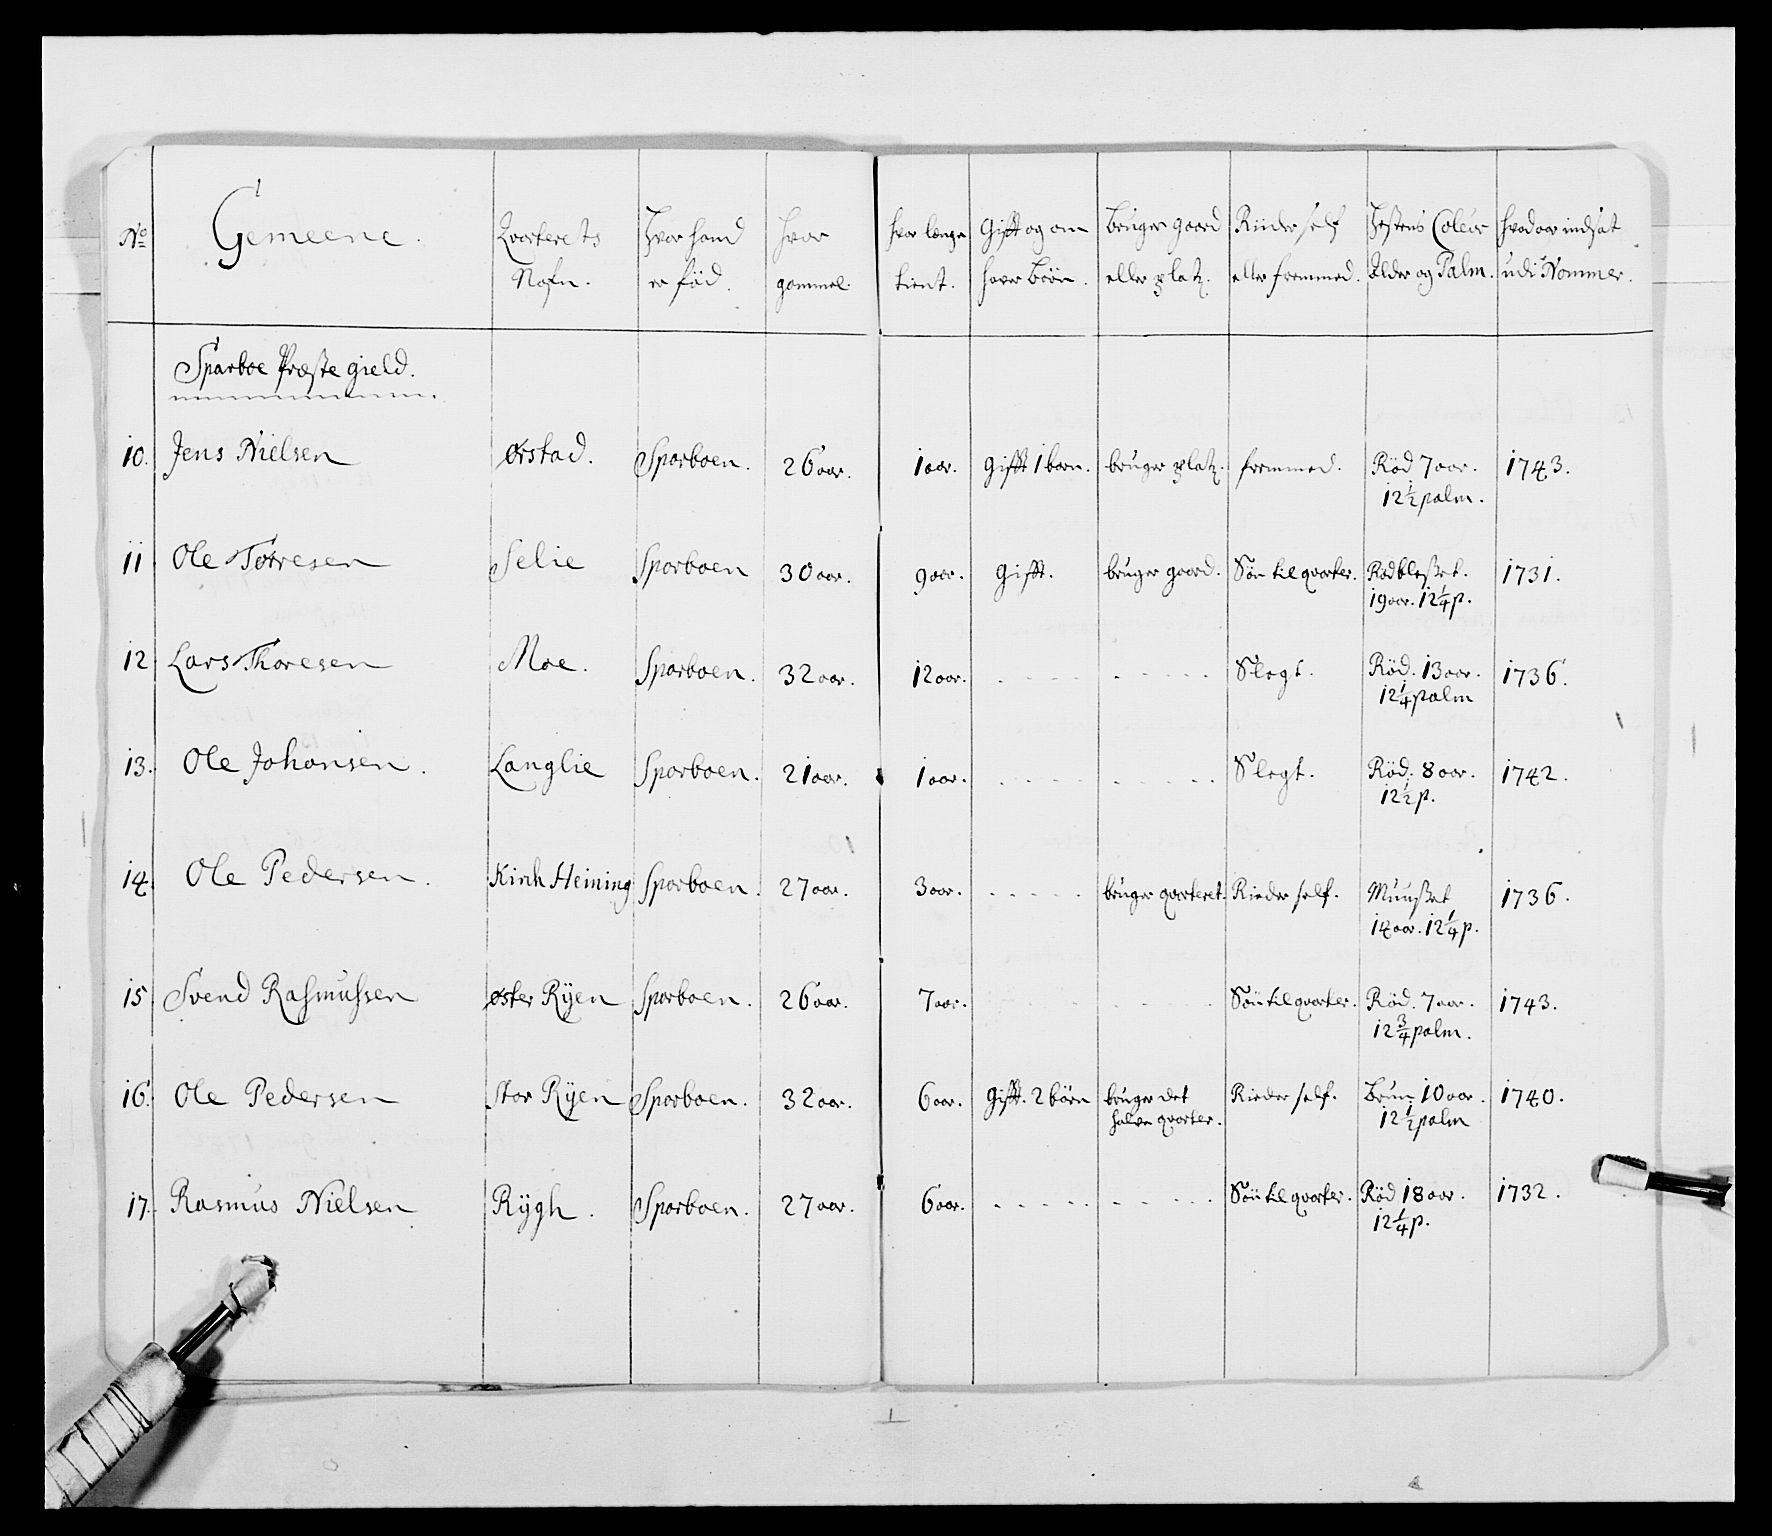 No
Gemeene.
Qvarterets
Nafn.
Hvor hand
er fød.
hvor
gammel.
hvor længe
tient.
Gifft og om
haver Børn.
Bruger gaard
eller platz.
Riider self
eller fremmed.
Hestens Coleur
Alder og Palm.
hvad aar indsat
udi Nommer.
Sparboe Præste gield.
10. Jens Nielsen Ørstad. Sparboen. 26 aar. 1 aar. Gifft 1 barn. bruger platz. fremmed. Rød 7 aar. 1743.
12½ palm.
11 Ole Torresen Selie Sparboen 30 aar. 9 aar. Gifft. bruger gaard. Søn til qvarter. Rødblesset. 1731.
19 aar. 12¼ p.
12 Lars Thoresen Moe. Sparboen. 32 aar. 12 aar. Slegt. Rød. 13 aar. 1736.
12¼ palm
13. Ole Johansen. Langlie Sparboen. 21 aar. 1 aar. Slegt. Rød. 8 aar. 1742.
12½ p.
14. Ole Pedersen. Kirch Heining Sparboen. 27 aar. 3 aar. bruger qvarteret. Rieder self. Muusset 1736.
14 aar. 12¼ p.
15 Svend Rasmussen Øster Rÿen Sparboen. 26 aar. 7 aar. Søn til qvarter. Rød. 7 aar. 1743.
12¾ palm.
16. Ole Pedersen Stor Rÿen Sparboen. 32 aar. 6 aar. Gifft. 2 børn bruger det Rieder self. Brun 10 aar. 1740.
halve qvarter. 12½ palm
17. Rasmus Nielsen Rÿgh. Sparboen. 27 aar. 6 aar. Søn til qvarter. Rød 18 aar. 1732.
12¼ p.